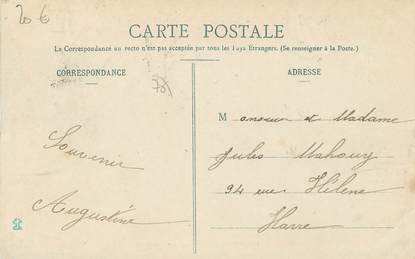 20 €
CARTE POSTALE
La Correspondance au recto n'est pas acceptée par tous les Pays Étrangers. (Se renseigner à la Poste.)
CORRESPONDANCE
ADRESSE
Souvenir
Augustine
Monsieur et Madame
Jules Mahouy
94 rue Hélène
Havre